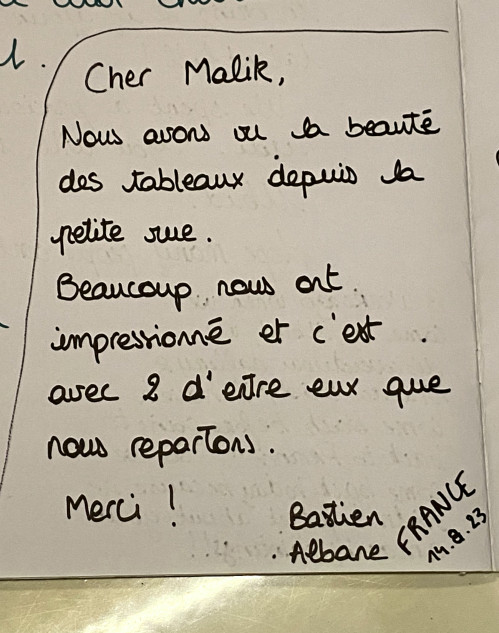 Cher Malik,
Nous avons vu la beauté
des tableaux depuis la
petite rue.
Beaucoup nous ont
impressionné et c'est
avec 2 d'entre eux que
nous repartons.
Merci !
Bastien
Albane
FRANCE
14.8.23